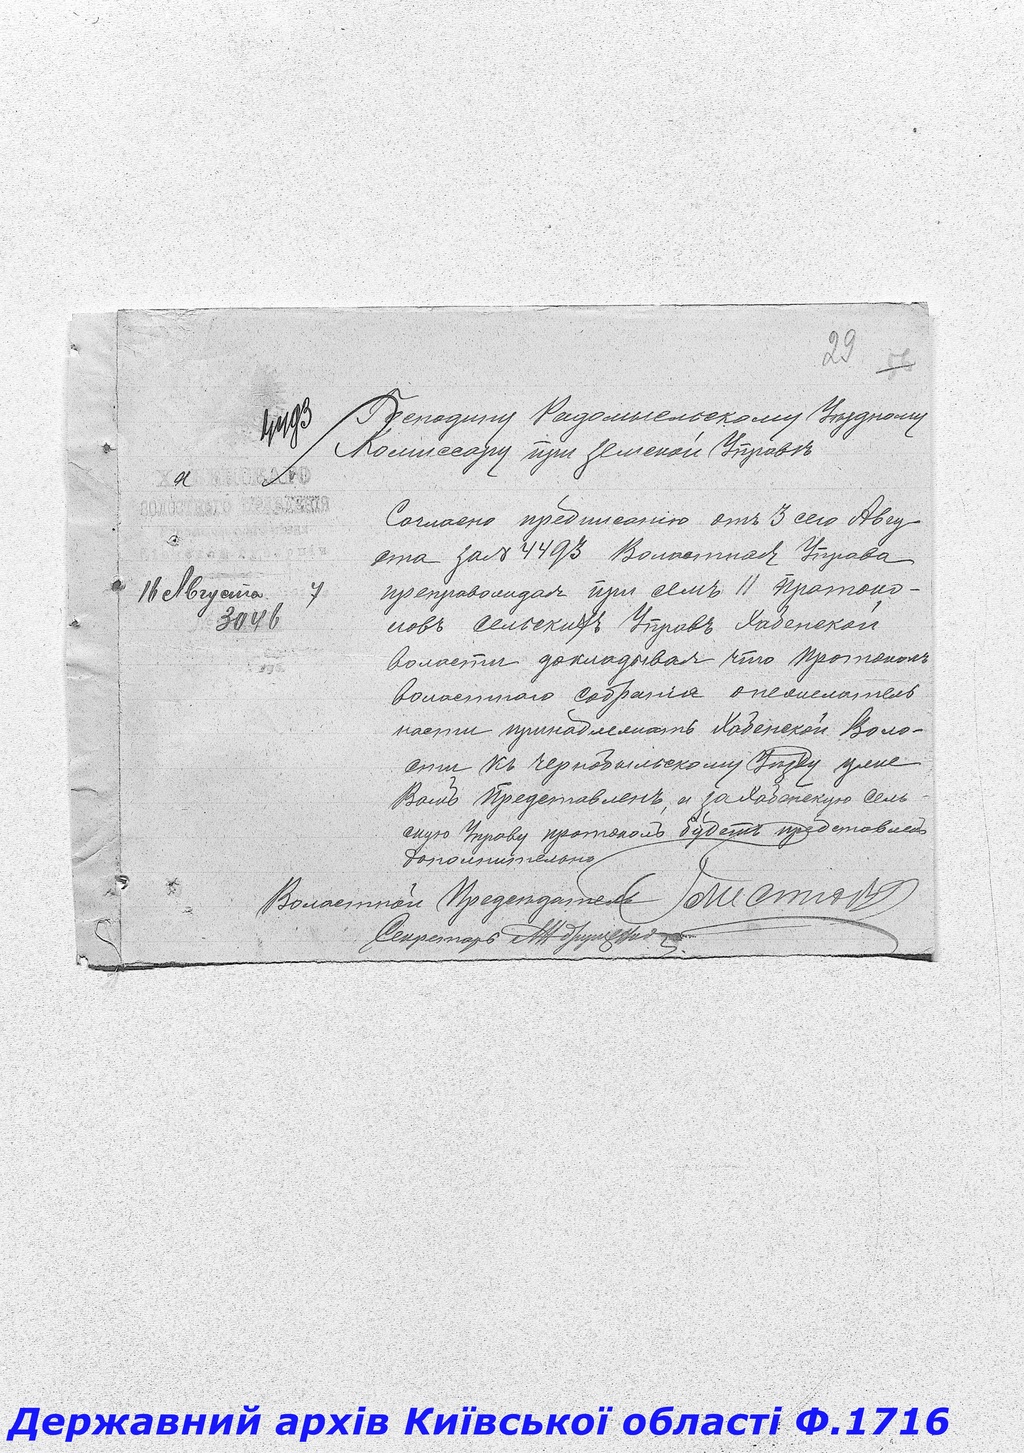 29
4493
Господину Радомысльскому Уездному
Комиссару при земской Управе
Согласно предписанію отъ 3 сего Авгу-
ста за № 4493 Волостная Управа
препровождая при семъ 11 Протоко-
ловъ сельскихъ Управъ Хабенской
волости докладывая что протоколъ
волостного собранія о нежелатель
ности принадлежать Хабенской Воло-
сти къ Чернобыльскому Уезду уже
Вамъ Представленъ, а за Хабенскую сель-
скую Управу протоколъ будетъ представленъ
дополнительно
16 Августа 7
3046
Волостной Председатель
Секретарь
Державний архів Київської області Ф.1716